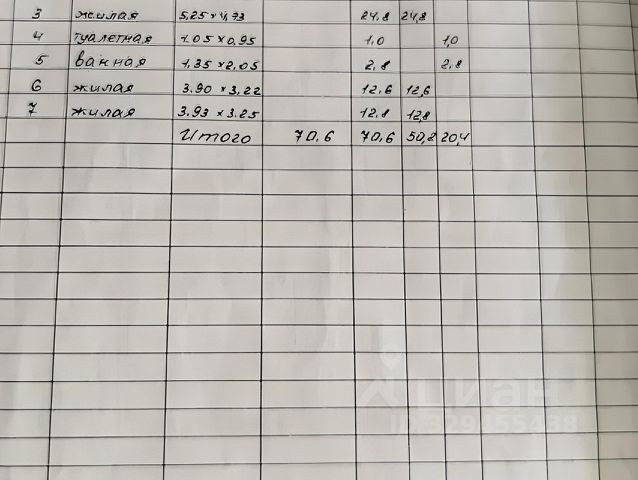 3 жилая 5,25 × 4,73 24,8 24,8
4 туалетная 1.05 × 0.95 1,0 1,0
5 ванная 1,35 × 2,05 2,8 2,8
6 жилая 3.90 × 3,22 12,6 12,6
7 жилая 3,93 × 3.25 12.8 12,8
Итого 70,6 70,6 50,2 20,4
циан
ID 329455438